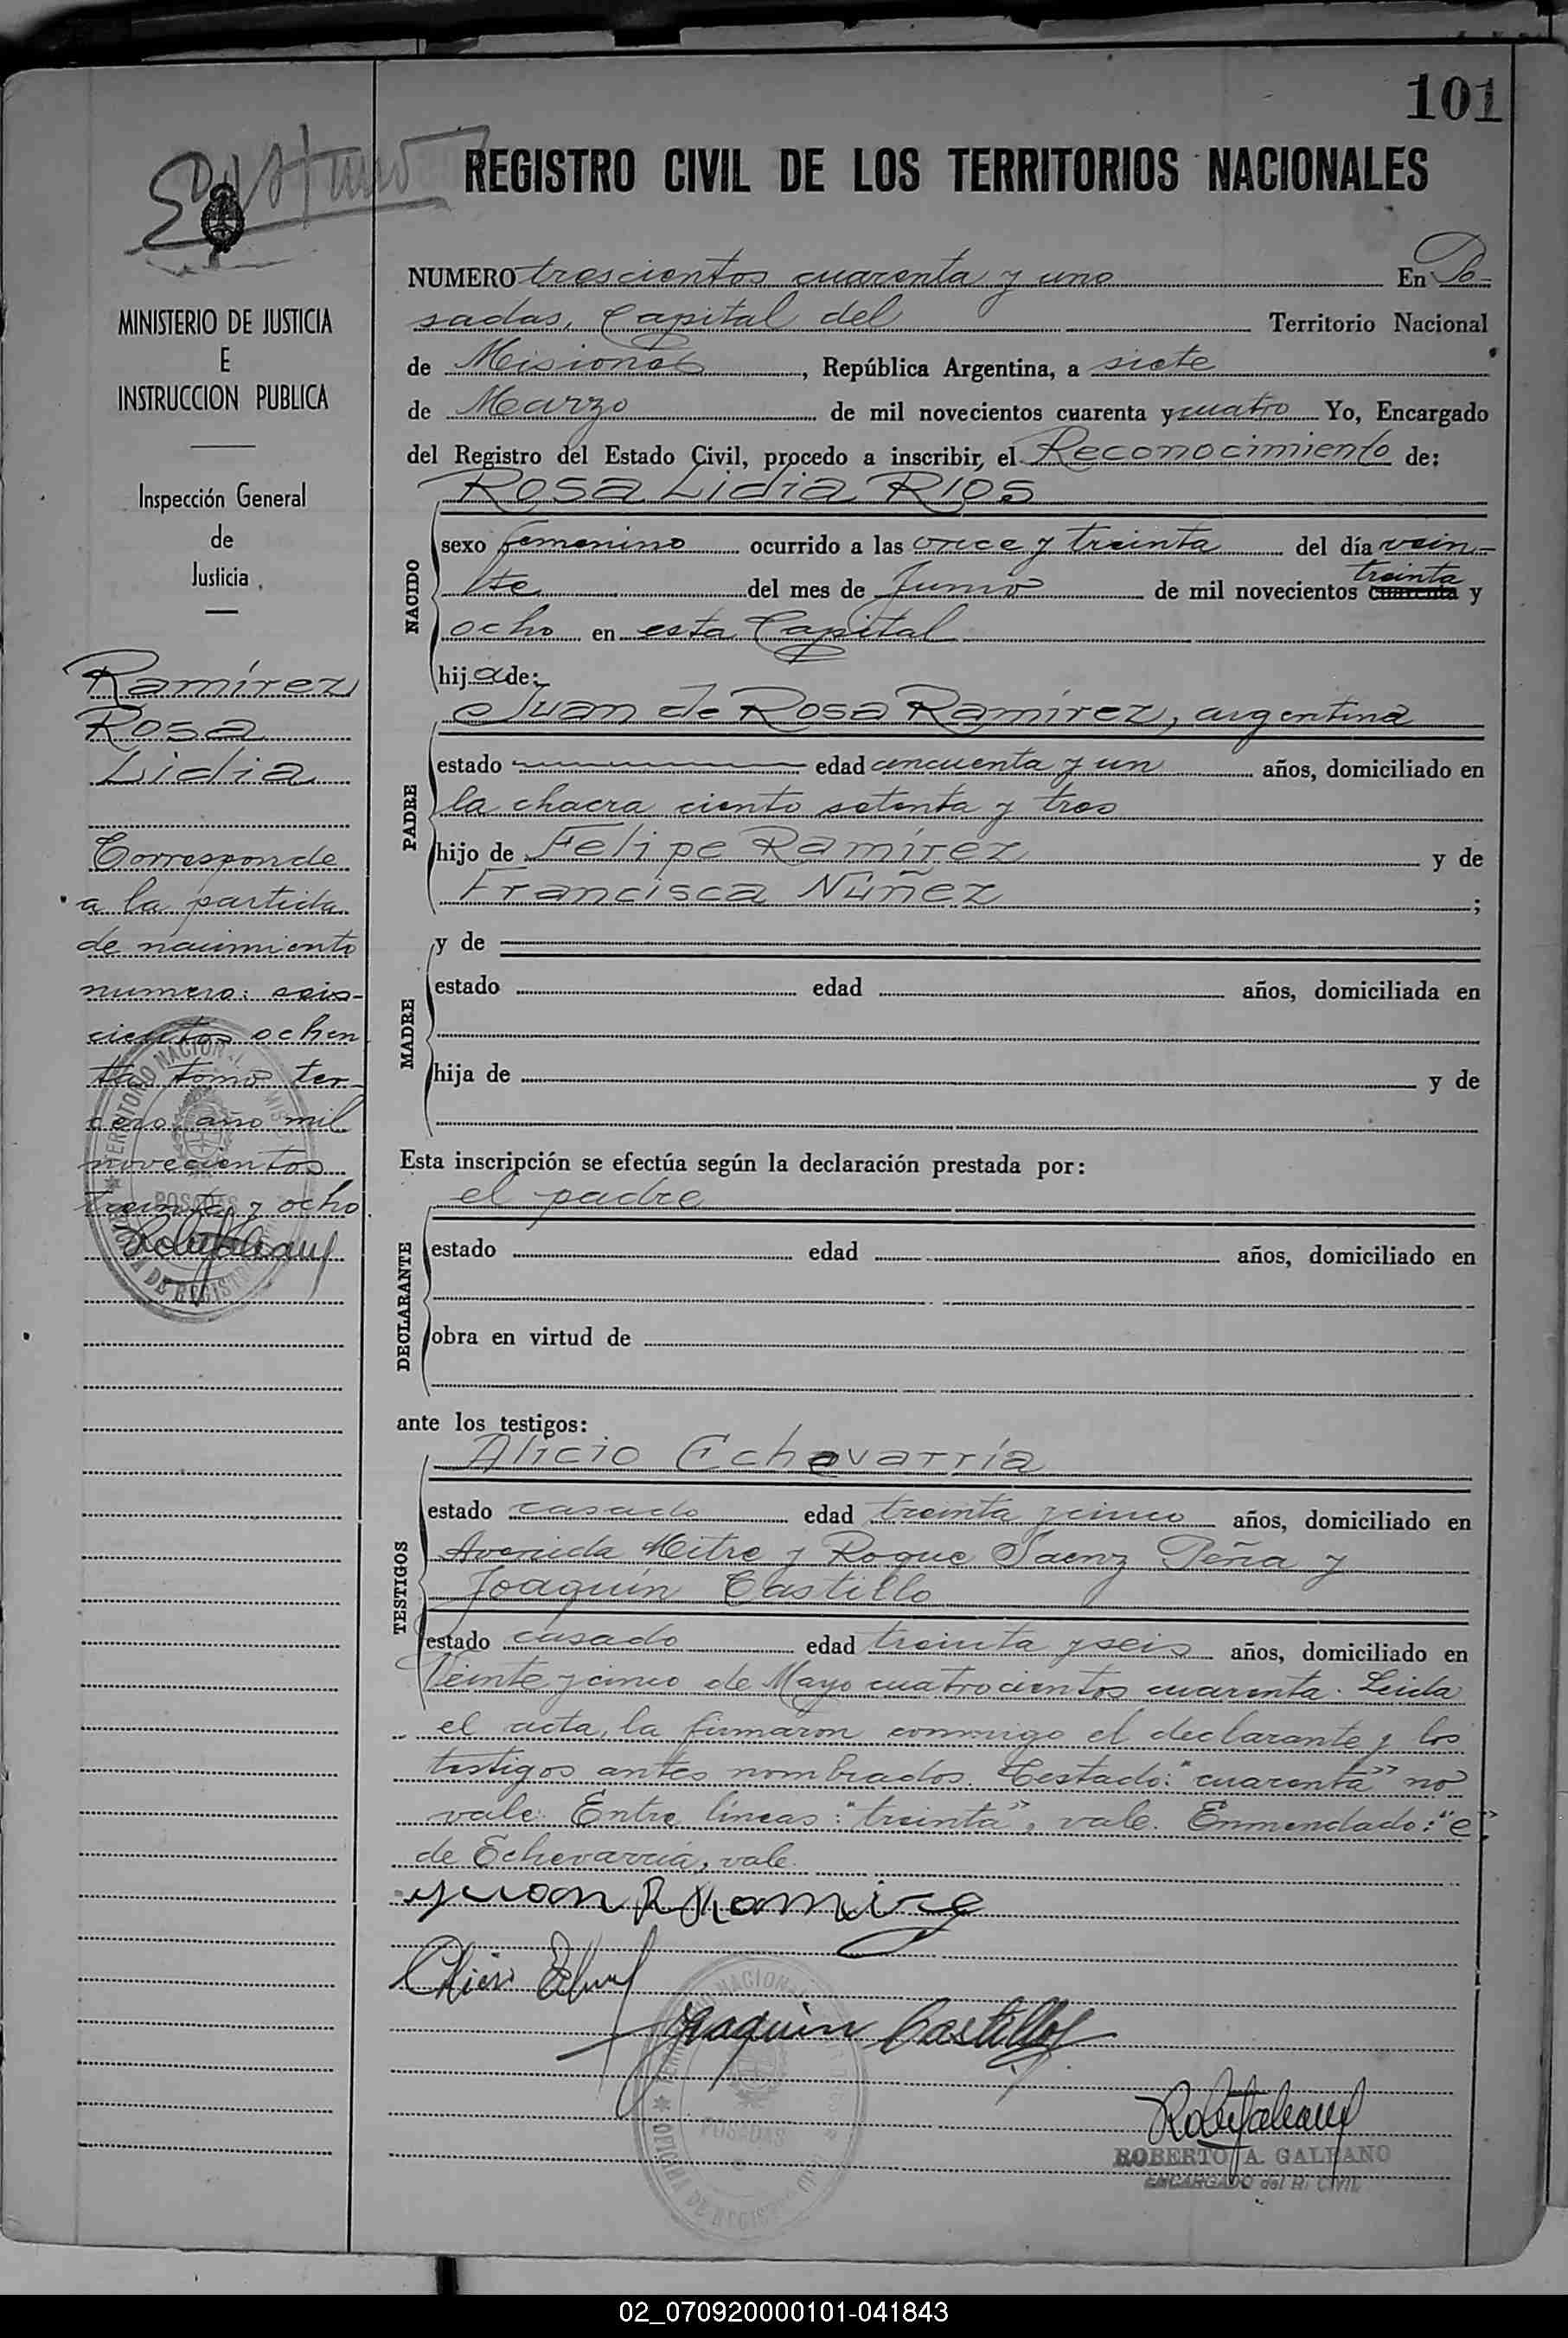 101
REGISTRO CIVIL DE LOS TERRITORIOS NACIONALES
MINISTERIO DE JUSTICIA
E
INSTRUCCION PUBLICA
Inspección General
de
Justicia
Ramírez
Rosa
Lidia
Corresponde
a la partida
de nacimiento
numero: seis-
cientos ochen
ta tomo ter-
cero año mil
novecientos
treinta y ocho
NUMERO trescientos cuarenta y uno En Po-
sadas, Capital del Territorio Nacional
de Misiones, República Argentina, a siete
de Marzo de mil novecientos cuarenta y cuatro Yo, Encargado
del Registro del Estado Civil, procedo a inscribir, el Reconocimiento de:
Rosa Lidia Rios
NACIDO
sexo femenino ocurrido a las once y treinta del día vein-
te del mes de Junio de mil novecientos cuarenta treinta y
ocho en esta Capital
hija de:
Juan de Rosa Ramírez, argentino
PADRE
estado edad cincuenta y un años, domiciliado en
la chacra ciento setenta y tres
hijo de Felipe Ramírez y de
Francisca Núñez ;
MADRE
y de
estado edad años, domiciliada en
hija de y de
Esta inscripción se efectúa según la declaración prestada por:
el padre
DECLARANTE
estado edad años, domiciliado en
obra en virtud de
ante los testigos:
Alicio Echevarría
TESTIGOS
estado casado edad treinta y cinco años, domiciliado en
Avenida Mitre y Roque Saenz Peña y
Joaquín Castillo
estado casado edad treinta y seis años, domiciliado en
Veinte y cinco de Mayo cuatrocientos cuarenta. Leida
el acta, la firmaron conmigo el declarante y los
testigos antes nombrados. Testado: "cuarenta" no
vale. Entre líneas: "treinta", vale. Enmendado: "e"
de Echevarría, vale.
Juan R Ramirez
Joaquin Castillo
POSADAS
ROBERTO A. GALEANO
ENCARGADO del R. CIVIL
02_070920000101-041843